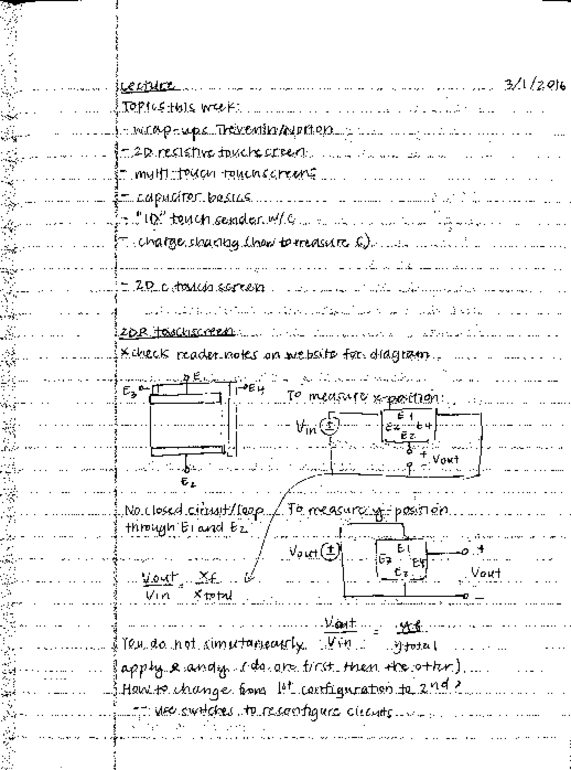 Lecture 3/1/2016
Topics this week:
- wrap-ups Thevenin/Norton
- 2D resistive touchscreen
- multi-touch touchscreens
- capacitor basics
- "1D" touch sender w/C
- charge sharing (how to measure C)
- 2D C touch screen
2DR touchscreen
*check reader notes on website for diagram
E1
E3 E4
E2
To measure x-position:
Vin
E1
E3 E4
E2
+
- Vout
No closed circuit/loop
through E1 and E2
To measure y-position
Vout
E1
E3 E4
E2
+
Vout
-
Vout/Vin = xf/xtotal
Vout/Vin = yf/ytotal
You do not simutaneously
apply x and y (do one first then the other)
How to change from 1st configuration to 2nd?
-- use switches to reconfigure circuits